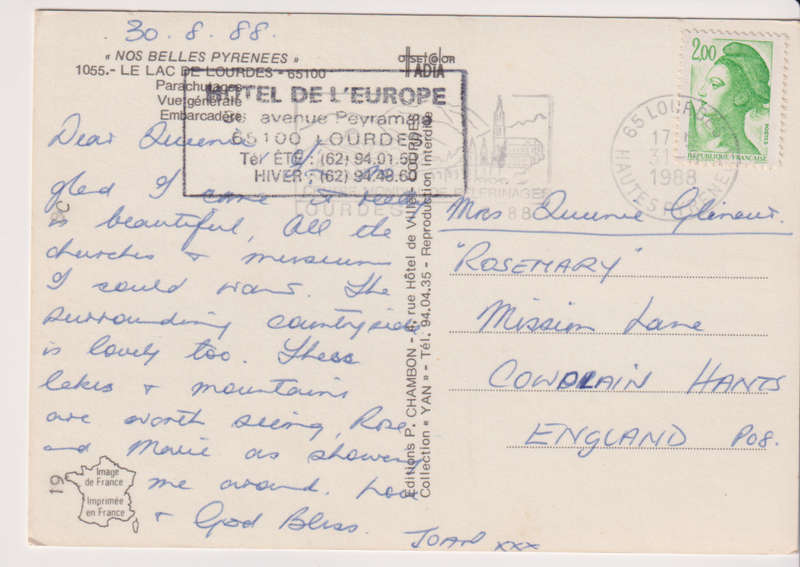 30.8.88.
« NOS BELLES PYRENEES »
1055.- LE LAC DE LOURDES - 65100
Parachutages
Vue générale
Embarcadère
HOTEL DE L'EUROPE
avenue Peyramale
65100 LOURDES
Tél ÉTÉ : (62) 94.01.50
HIVER : (62) 94.49.60
Dear Queenie
glad I came it really
is beautiful, All the
churches & museums
I could want. The
surrounding countryside
is lovely too. These
lakes & mountains
are worth seeing, Rose
and Marie are showing
me around. Love
& God Bless.
JOAN xxx
19
Image
de France
Imprimée
en France
Editions P. CHAMBON - rue Hôtel de Ville - LOURDES
Collection « YAN » - Tél. 94.04.35 - Reproduction interdite
ADIA
LOURDES
2,00
POSTES
REPUBLIQUE FRANÇAISE
65 LOURDES
17
31
1988
HAUTES PYRENEES
Mrs Queenie
"ROSEMARY"
Mission Lane
COWPLAIN HANTS
ENGLAND PO8.